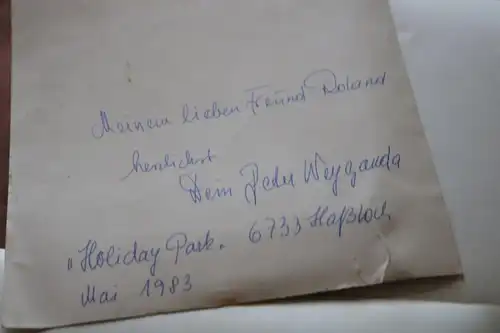 Meinem lieben Freund Roland
herzlichst
Dein Peter Weyganda
"Holiday Park. 6733 Haßloch
Mai 1983